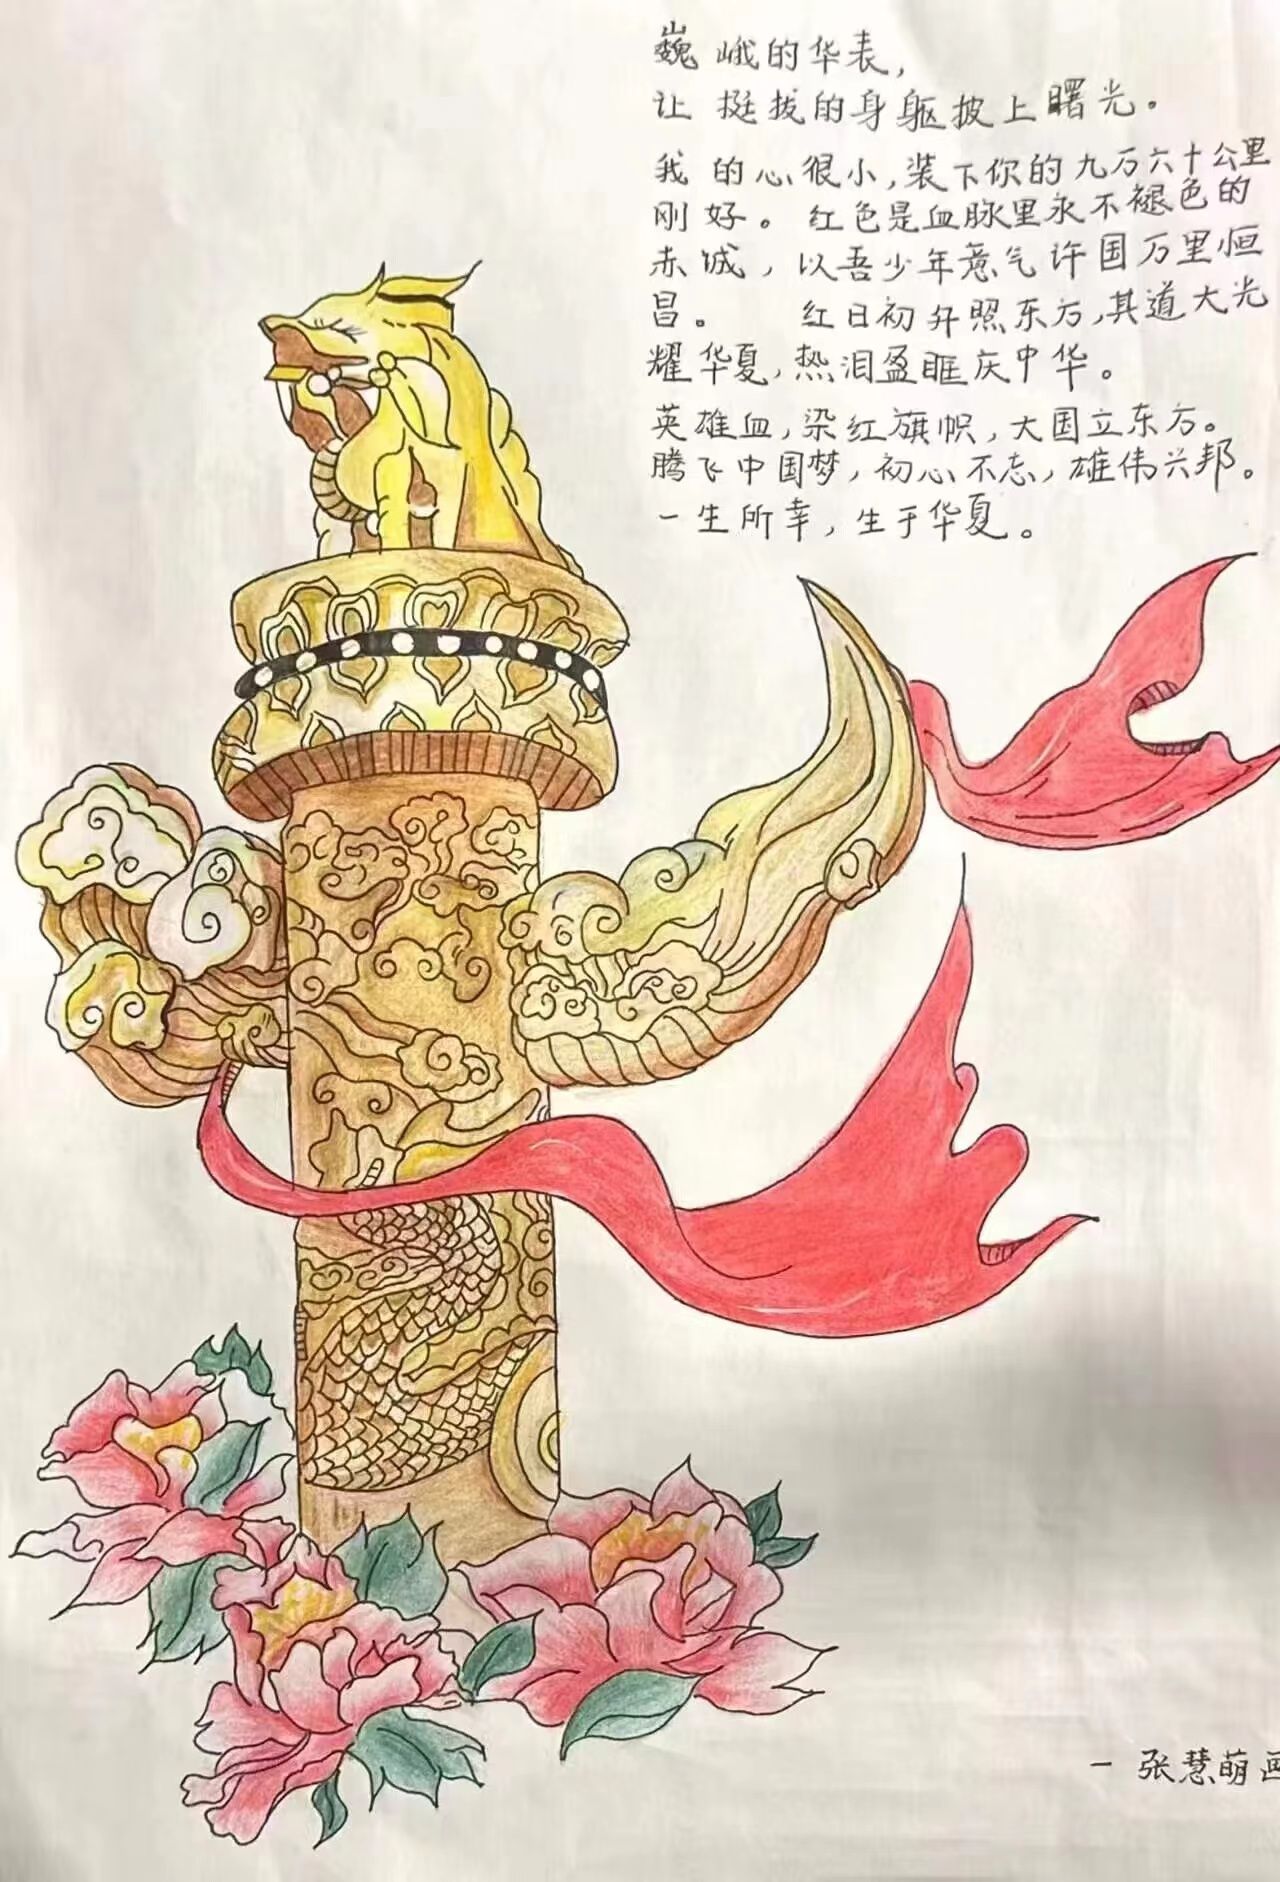 巍峨的华表，
让挺拔的身躯披上曙光。
我的心很小，装下你的九万六十公里
刚好。红色是血脉里永不褪色的
赤诚，以吾少年意气许国万里恒
昌。红日初升照东方，其道大光
耀华夏，热泪盈眶庆中华。
英雄血，染红旗帜，大国立东方。
腾飞中国梦，初心不忘，雄伟兴邦。
一生所幸，生于华夏。
一 张慧萌画